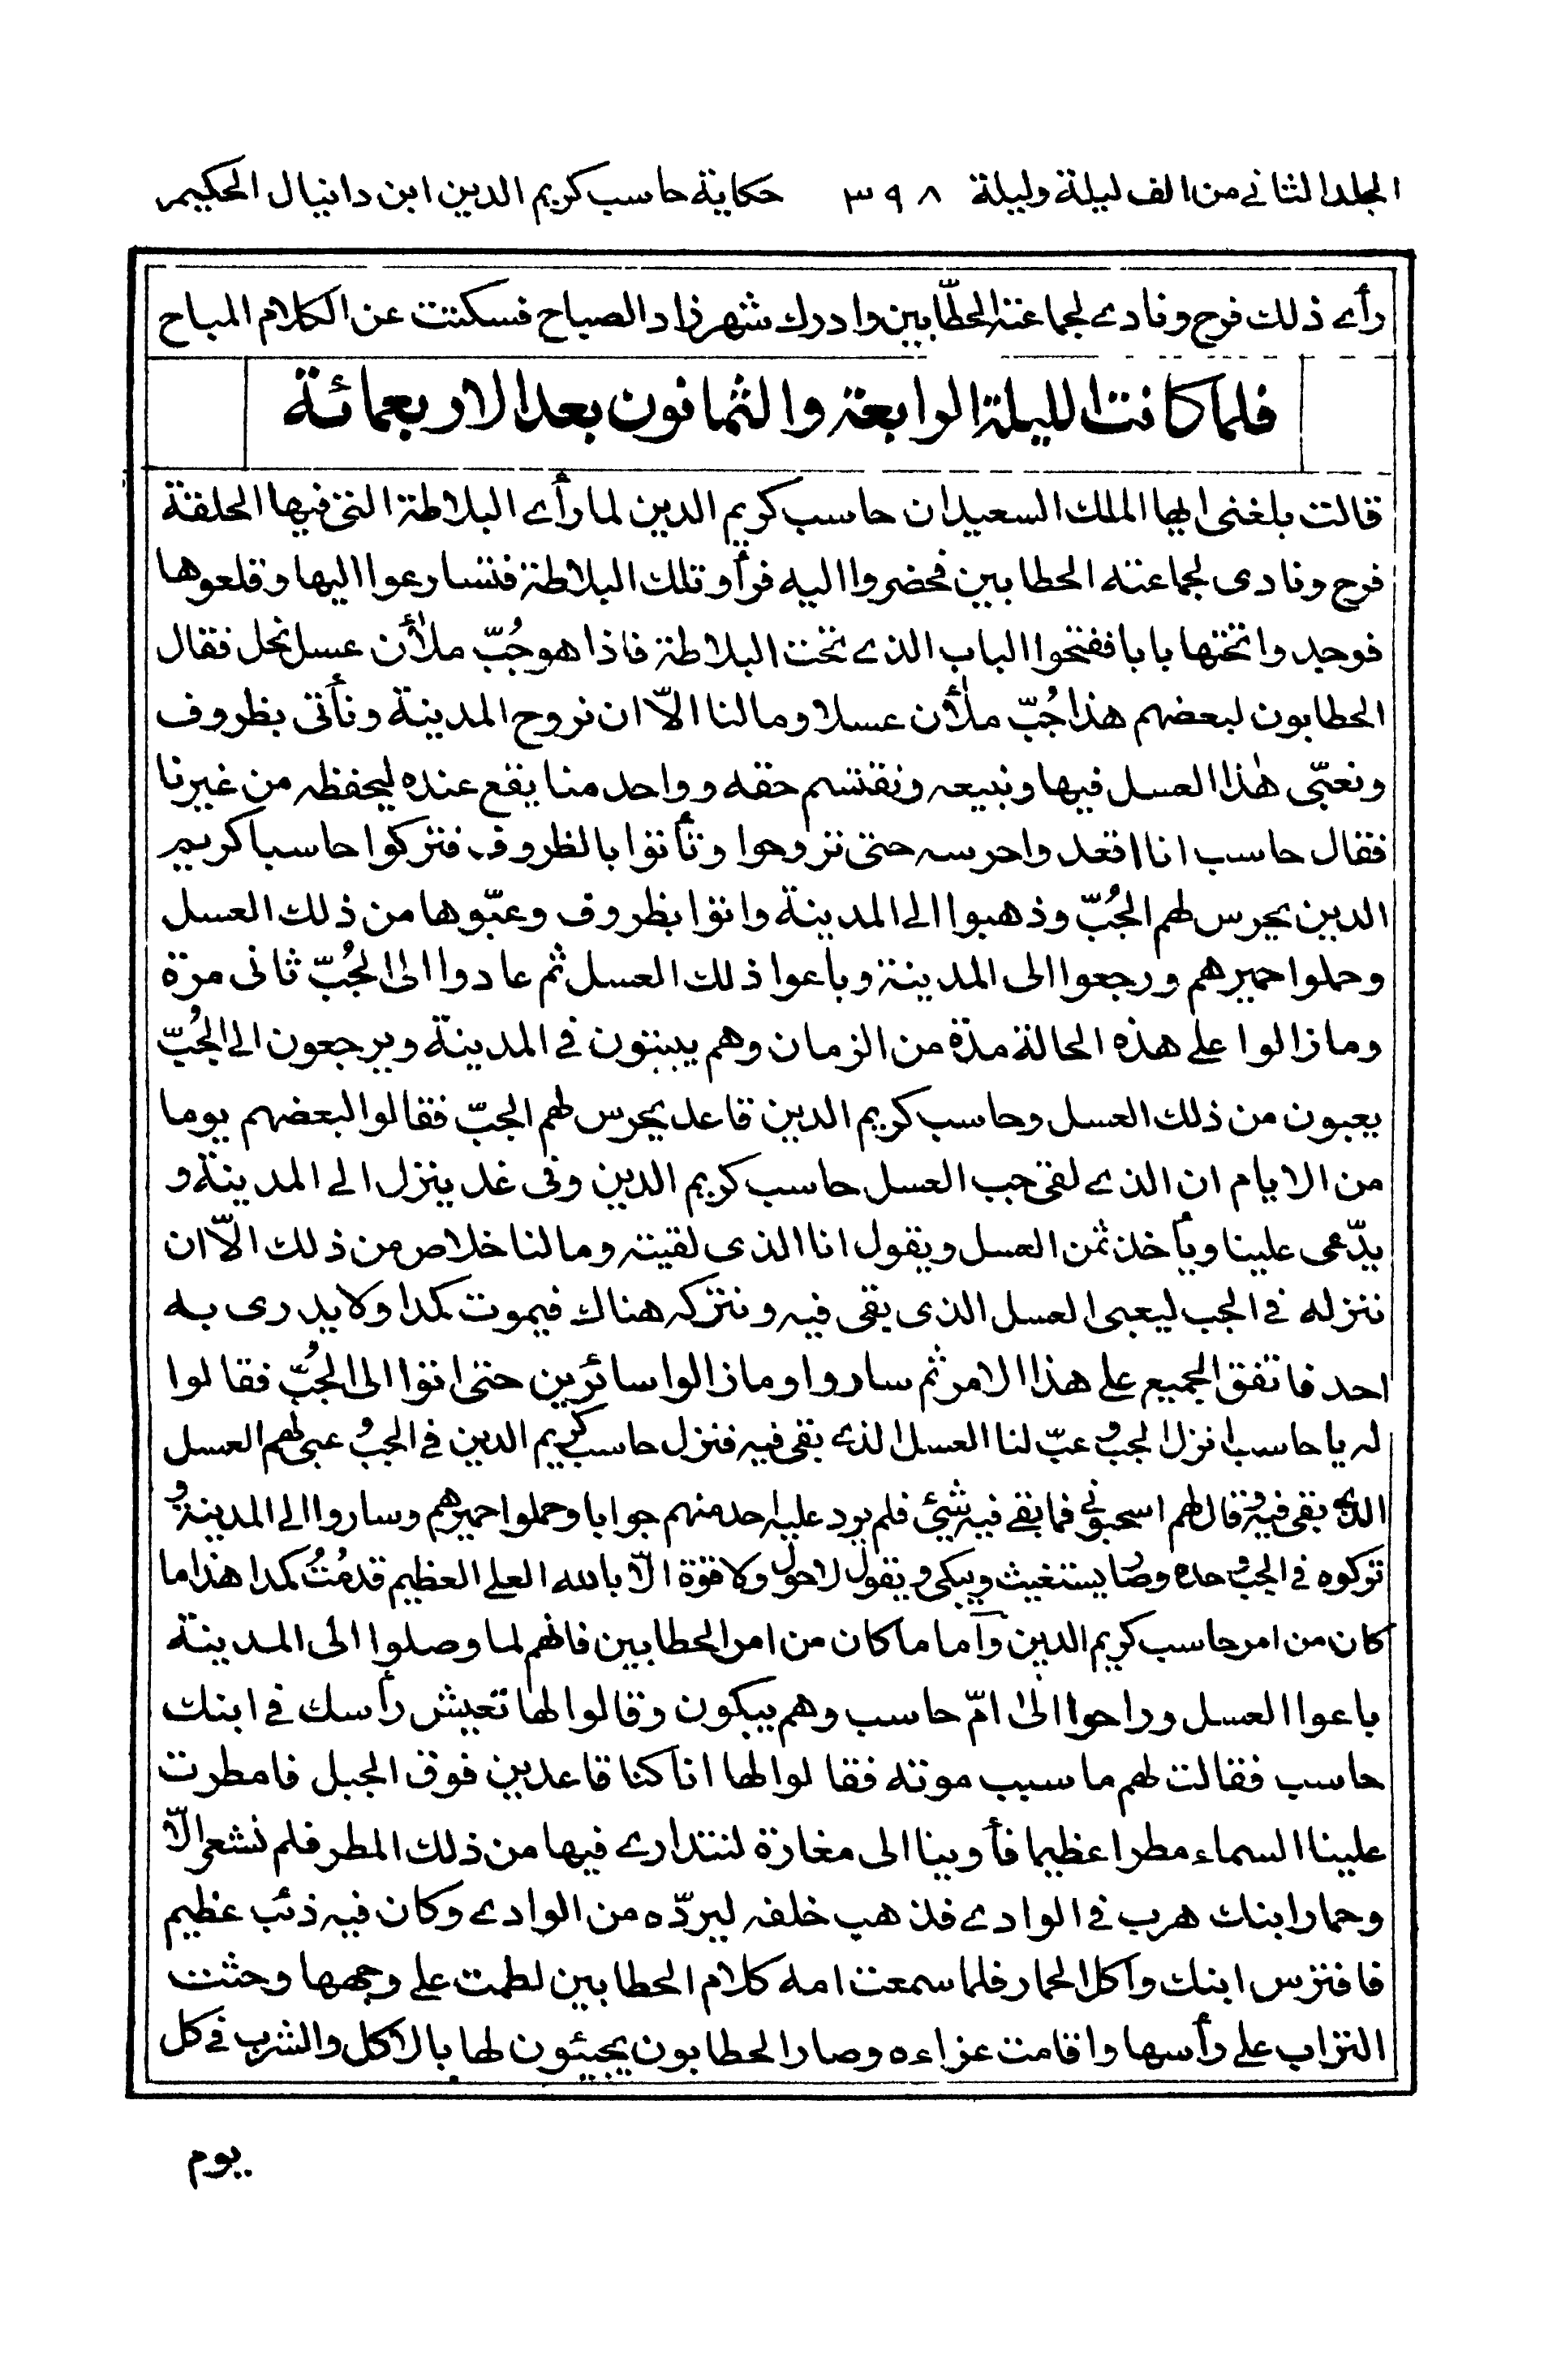 المجلد الثاني من الف ليلة وليلة ٣٩٨ حكاية حاسب كريم الدين ابن دانيال الحكيم
رأى ذلك فرح ونادى لجماعته الحطّابين وادرك شهرزاد الصباح فسكتت عن الكلام المباح
فلما كانت الليلة الرابعة والثمانون بعد الاربعمائة
قالت بلغنى ايها الملك السعيد ان حاسب كريم الدين لما رأى البلاطة التى فيها الحلقة
فرح ونادى لجماعته الحطابين فحضروا اليه فرأوتلك البلاطة فتسارعوا اليها وقلعوها
فوجدوا تحتها بابا ففتحوا الباب الذى تحت البلاطة فاذا هو جُبّ ملأن عسل نحل فقال
الحطابون لبعضهم هذا جُبّ ملأن عسلا وما لنا الاّ ان نروح المدينة ونأتى بظروف
ونعبّى هٰذا العسل فيها ونبيعه ونقتسم حقه وواحد منا يقع عنده ليحفظه من غيرنا
فقال حاسب انا اقعد واحرسه حتى تروحوا وتأتوا بالظروف فتركوا حاسبا كريم
الدين يحرس لهم الجُبّ وذهبوا الى المدينة واتوا بظروف وعبّوها من ذلك العسل
وحملوا حميرهم ورجعوا الى المدينة وباعوا ذلك العسل ثم عادوا الى الجُبّ ثانى مرة
وما زالوا على هذه الحالة مدّة من الزمان وهم يبيتون في المدينة ويرجعون الى الجُبّ
يعبون من ذلك العسل وحاسب كريم الدين قاعد يحرس لهم الجبّ فقالوا لبعضهم يوما
من الايام ان الذى لقى جب العسل حاسب كريم الدين وفى غد ينزل الى المدينة و
يدّعى علينا ويأخذ ثمن العسل ويقول انا الذى لقيته وما لنا خلاص من ذلك الاّ ان
ننزله في الجب ليعبى العسل الذى بقى فيه ونتركه هناك فيموت كمدا ولا يدرى به
احد فاتفق الجميع على هذا الامر ثم ساروا وما زالوا سائرين حتى اتوا الى الجُبّ فقالوا
له يا حاسب انزل الجب وعبّ لنا العسل الذى بقى فيه فنزل حاسب كريم الدين في الجب وعبى لهم العسل
الذى بقى فيه وقال لهم اسحبوني فما بقى فيه شيئ فلم يرد عليه احد منهم جوابا وحملوا حميرهم وساروا الى المدينة و
تركوه في الجب وحده وصار يستغيث ويبكى ويقول لا حول ولا قوّة الاّ بالله العلى العظيم قد مُتُ كمدا هذا ما
كان من امر حاسب كريم الدين وآما ما كان من امر الحطابين فانهم لما وصلوا الى المدينة
باعوا العسل وراحوا الىٰ امّ حاسب وهم يبكون وقالوا لها تعيش رأسك في ابنك
حاسب فقالت لهم ما سبب موته فقالوا لها انا كنا قاعدين فوق الجبل فامطرت
علينا السماء مطرا عظيما فأوينا الى مغارة لنتدارى فيها من ذلك المطر فلم نشعر الاّ
وحمار ابنك هرب في الوادى فذهب خلفه ليردّه من الوادى وكان فيه ذئب عظيم
فافترس ابنك وآكل الحمار فلما سمعت امه كلام الحطابين لطمت على وجهها وحثت
التراب على رأسها واقامت عزاءه وصار الحطابون يجيئون لها بالاكل والشرب في كل
يوم